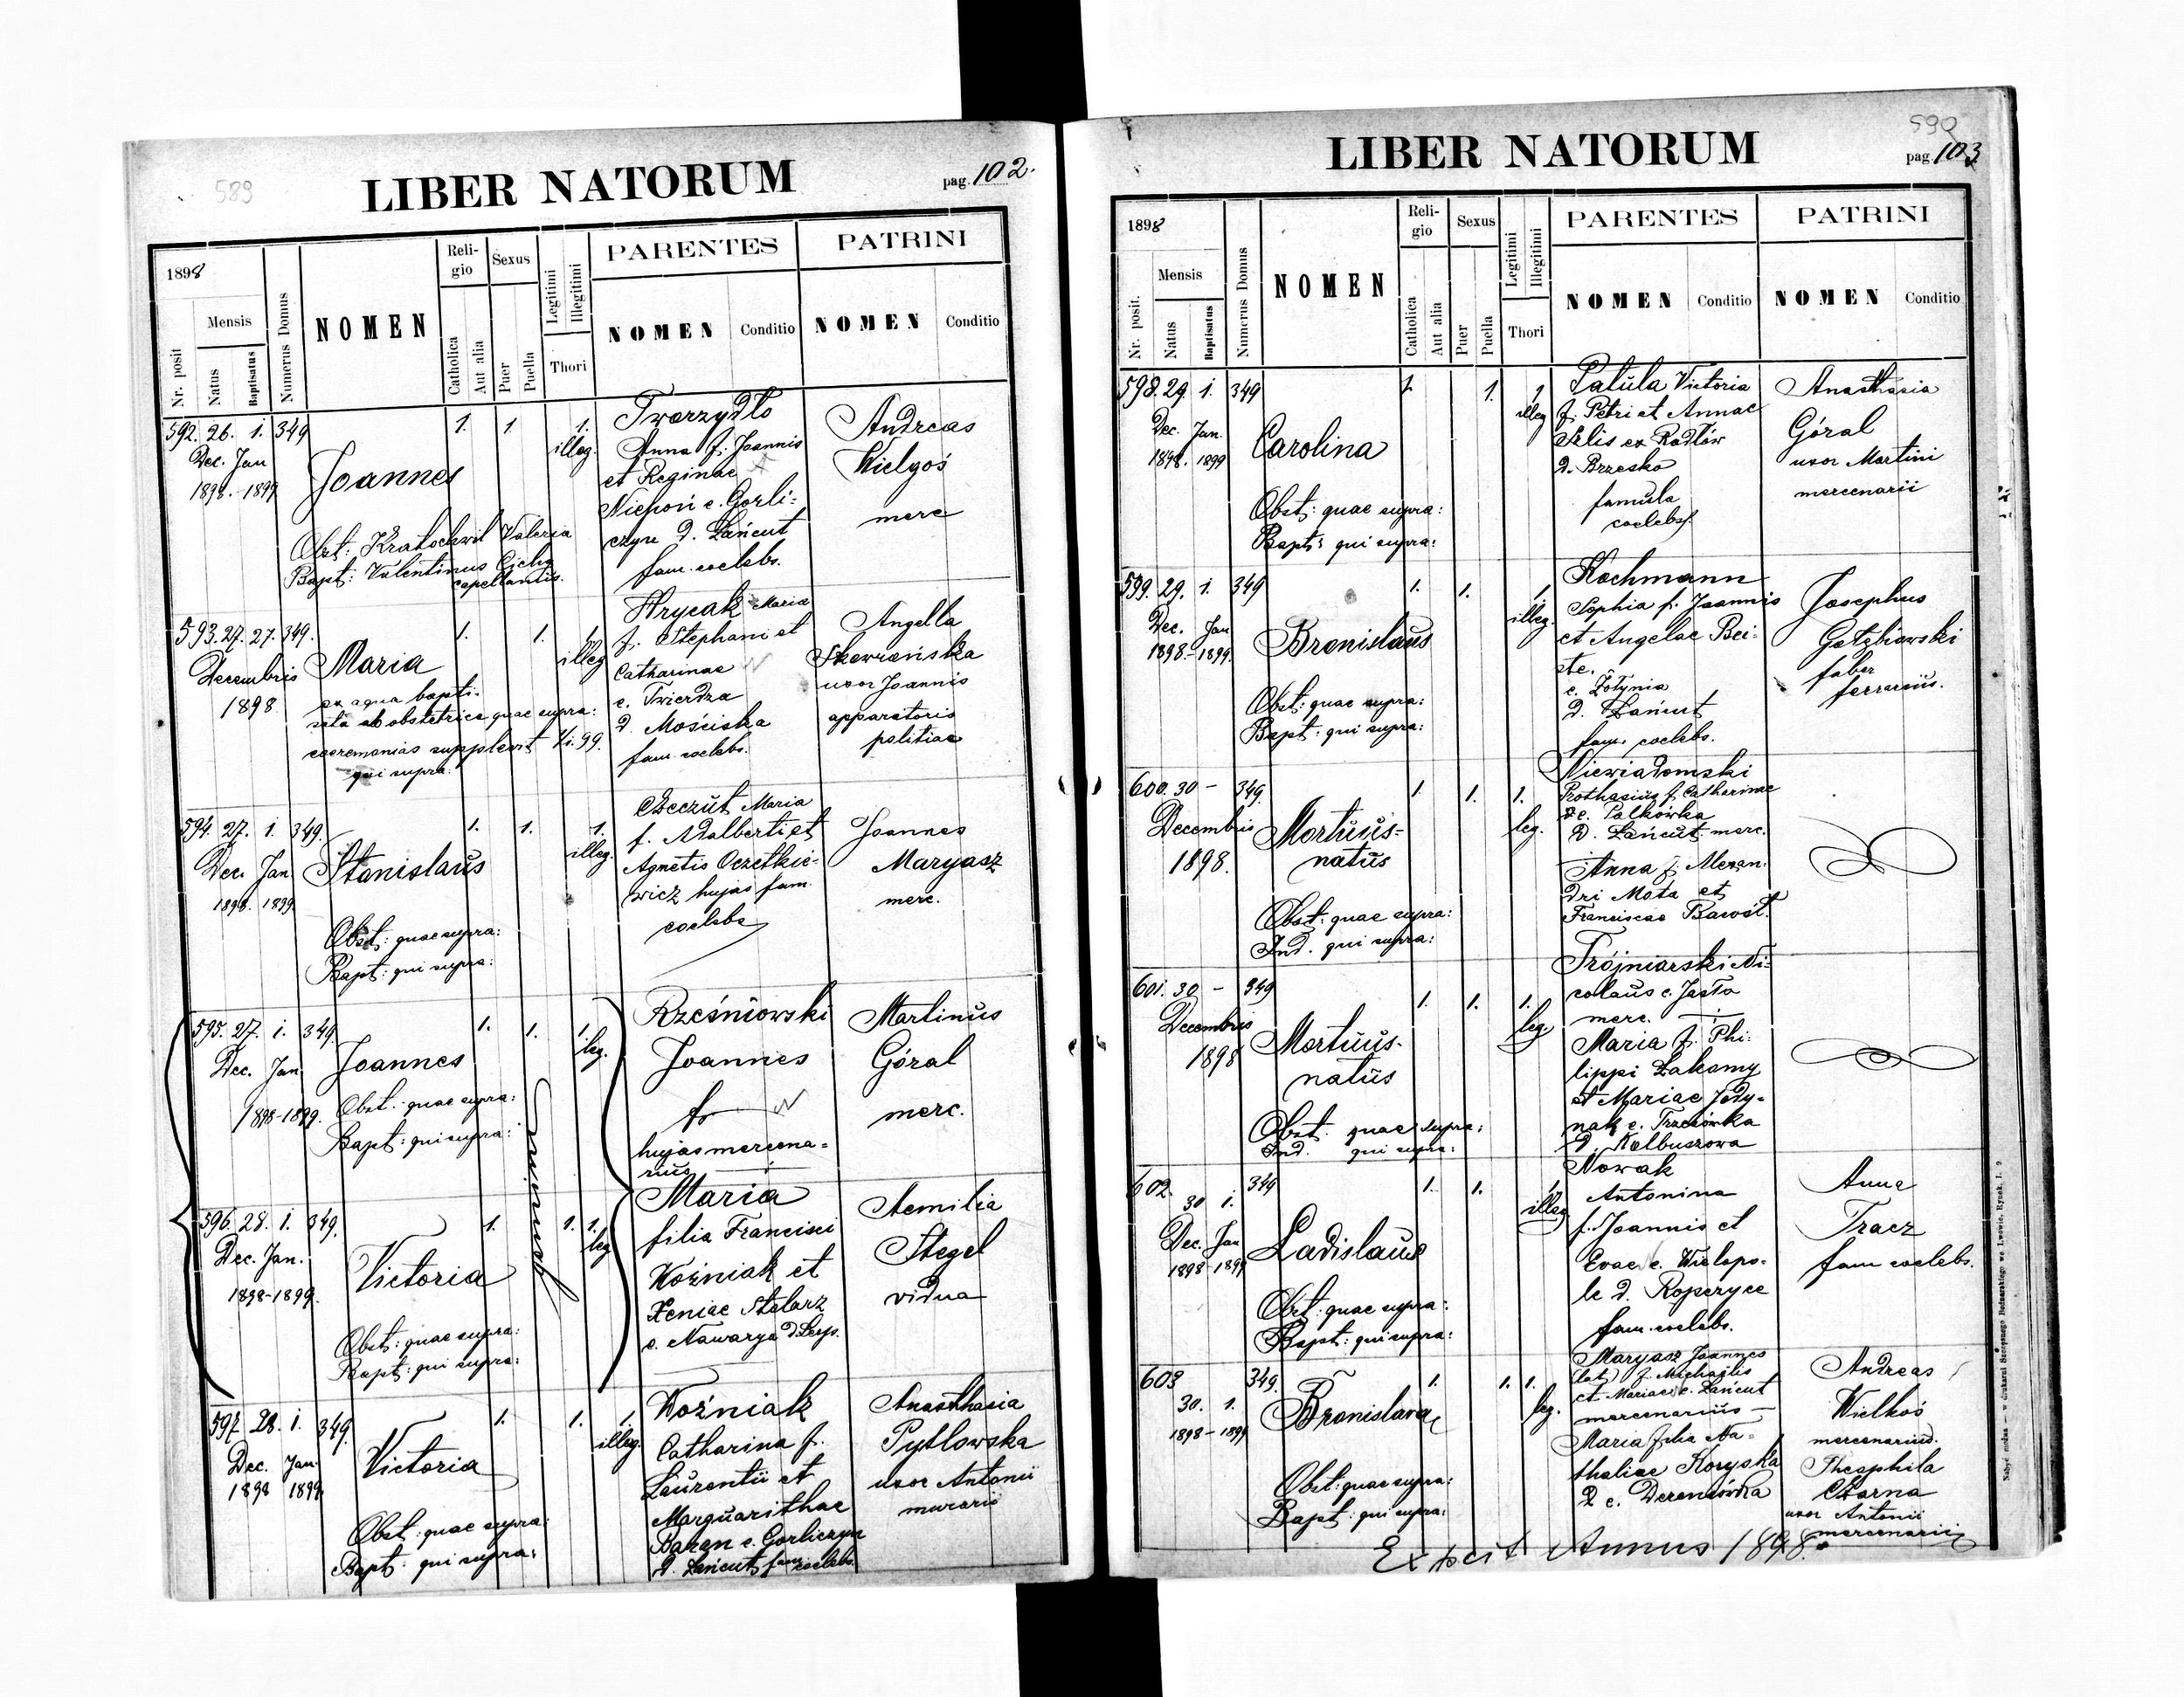 589
LIBER NATORUM
pag. 102.
1898
Nr. posit
Mensis
Natus
Baptisatus
Numerus Domus
NOMEN
Reli-
gio
Catholica
Aut alia
Sexus
Puer
Puella
Legitimi
Illegitimi
Thori
PARENTES
NOMEN
Conditio
PATRINI
NOMEN
Conditio
592. 26. 1. 349
Dec. Jan
1898. - 1899
Joannes
Obst: Kratochwil Valeria
Bapt: Valentinus Cichy
capellanus.
1. 1. 1.
illeg.
Tworzydło
Anna f. Joannis
et Reginae
Niepoń e. Gorli-
czyn d. Łańcut
fam. coelebs.
Andreas
Wielgoś
merc
593. 27. 27. 349.
Decembris
1898
Maria
ex aqua bapti-
zata ab obstetrice quae supra:
caeremonias supplevit 1/1. 99.
qui supra.
1. 1. 1.
illeg
Hrycak Maria
f. Stephani et
Catharinae
e. Twierdza
d. Mościska
fam. coelebs.
Angella
Skowrońska
uxor Joannis
apparatoris
politiae
594. 27. 1. 349.
Dec. Jan
1898. 1899
Stanislaus
Obst: quae supra:
Bapt: qui supra:
1. 1. 1.
illeg.
Maria
f. Adalberti et
Agnetis
wicz hujas fam.
coelebs
Joannes
Maryasz
merc.
595. 27. 1. 349.
Dec. Jan
1898-1899.
Joannes
Obst: quae supra:
Bapt: qui supra:
1. 1. 1.
leg.
Rześniowski
Joannes
hujas mercena-
rius
Martinus
Góral
merc.
596. 28. 1. 349.
Dec. Jan.
1898-1899.
Victoria
Obst: quae supra:
Bapt: qui supra:
1. 1. 1.
leg
Maria
filia Francisci
Woźniak et
Xeniae Stolarz
e. Nawarya
Aemilia
Stegel
vidua
597 28. 1. 349.
Dec. Jan.
1898 1899
Victoria
Obst: quae supra:
Bapt: qui supra:
1. 1. 1.
illeg.
Woźniak
Catharina f.
Laurentii et
Marguarithae
Baran e. Gorliczyn
d. Łańcut fam. coelebs.
Anasthasia
Pytlowska
uxor Antonii
murarii
590
LIBER NATORUM
pag. 103
1898
Nr. posit.
Mensis
Natus
Baptisatus
Numerus Domus
NOMEN
Reli-
gio
Catholica
Aut alia
Sexus
Puer
Puella
Legitimi
Illegitimi
Thori
PARENTES
NOMEN
Conditio
PATRINI
NOMEN
Conditio
598. 29. 1. 349
Dec. Jan.
1898. 1899
Carolina
Obst: quae supra:
Bapt: qui supra:
1. 1. 1
illeg
Patula Victoria
f. Petri et Annae
ex Radłów
d. Brzesko
famula
coelebs.
Anasthasia
Góral
uxor Martini
mercenarii
599. 29. 1. 349
Dec. Jan
1898.-1899.
Bronislaus
Obst: quae supra:
Bapt: qui supra:
1. 1. 1.
illeg.
Kochmann
Sophia f. Joannis
et Angelae Bei-
ste.
e. Żołynia
d. Łańcut
fam. coelebs.
Josephus
Gołębiowski
faber
ferrarius.
600. 30 - 349.
Decembris
1898.
Mortuus-
natus
Obst: quae supra:
Ind. qui supra:
1. 1. 1.
leg.
Niewiadomski
Prothasius f. Catharinae
de. Palkówka
d. Łańcut merc.
Anna f. Alexan-
dri Mota et
Franciscae
601. 30 - 349
Decembris
1898
Mortuus-
natus
Obst. quae supra:
Ind. qui supra:
1. 1. 1.
leg
Trójniarski Ni-
colaus e. Jasło
merc.
Maria f. Phi-
lippi Łakomy
et Mariae Jedy-
nak e. Trześówka
d. Kolbuszowa
602. 349
30 1.
Dec. Jan
1898-1899
Ladislaus
Obst: quae supra:
Bapt: qui supra:
1. 1. 1
illeg
Nowak
Antonina
f. Joannis et
Evae e. Wielopo-
le d. Ropczyce
fam. coelebs.
Anna
Tracz
fam coelebs.
603 349.
30. 1.
1898-1899
Bronislava
Obst: quae supra:
Bapt: qui supra:
1. 1. 1.
leg.
Maryasz Joannes
f. Michaelis
et Mariae e. Łańcut
mercenarius
Maria filia Na-
thaliae Koryska
d e. Dereniówka
Andreas
Wielkoś
mercenarius.
Theophila
Czarna
uxor Antonii
mercenarii
Expcit Annus 1898.